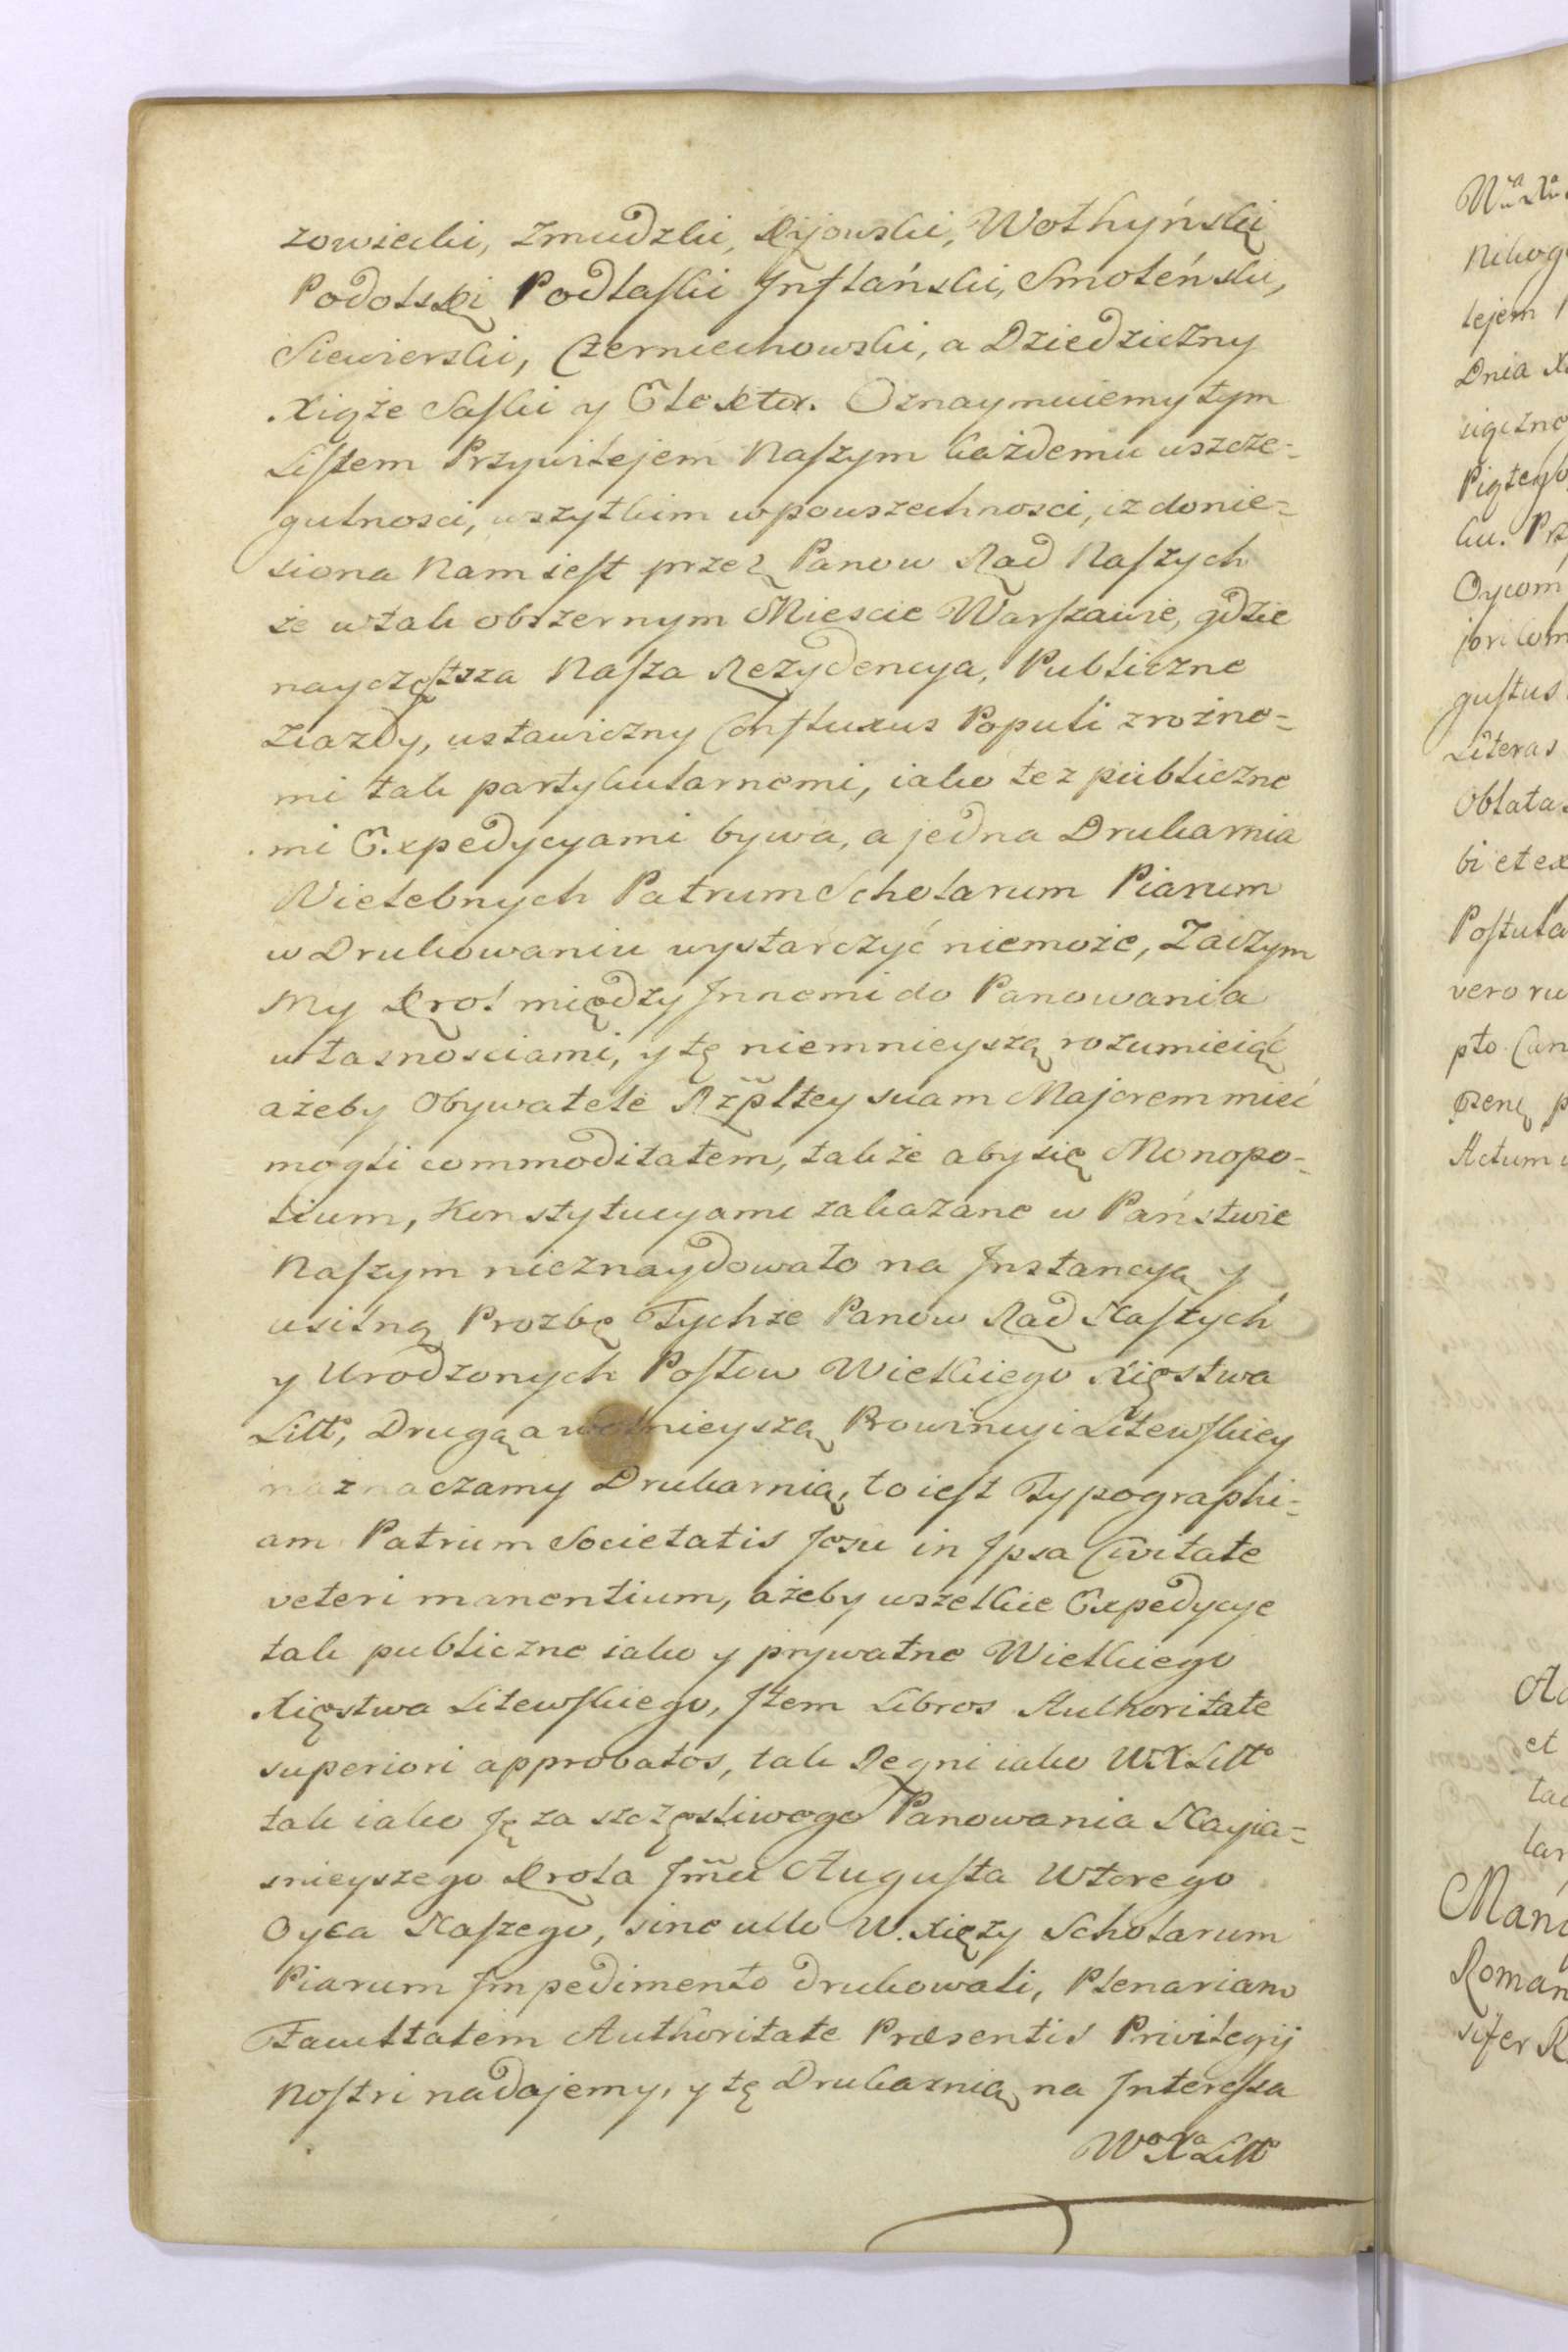 zowiecki, Zmudzki, Kijowski, Wołhyński
Podolski Podlaſki Inflański, Smoleński,
Siewierski, Czerniechowski, a Dziedziczny
Xiąże Saſki y Elektor. Oznaymuiemy tym
Liſtem Przywilejem Naſzym każdemu wszcze=
gulnosci, wszytkim wpowszechnosci, iz donie=
siona Nam ieſt przez Panow Rad Naſzych
że wtak obszernym Miescie Warſzawie, gdzie
nayczęſtsza Naſza Rezydencya, Publiczne
Ziazdy, ustawiczny Confluxus Populi zrożne=
mi tak partykularnemi, iako tez publiczne
mi Expedycyami bywa, a jedna Drukarnia
Wielebnych Patrum Scholarum Piarum
w Drukowaniu wystarczyć niemoże, Zaczym
My Krol między Innemi do Panowania
własnosciami, y tę niemnieyszą rozumieiąć
ażeby Obywatele Rzpltey suam Majorem mieć
mogli commoditatem, także aby się Monopo=
lium, Konstytucyami zakazane w Państwie
Naſzym nieznaydowało na Instancyą y
usilną Prozbę Tychże Panow Rad Naſzych
y Urodzonych Poſłow Wielkiego Xięstwa
Litt, Drugą a wolnieyszą Prowincyi Litewſkiey
naznaczamy Drukarnią, to ieſt Typographi=
am Patrum Societatis Jesu in Ipsa Civitate
veteri manentium, ażeby wszelkie Expedycye
tak publiczne iako y prywatne Wielkiego
Xięstwa Litewſkiego, Item Libros Authoritate
superiori approbatos, tak Regni iako W.X.Litt
tak iako Ję za szczęsliwego Panowania Nayia=
snieyszego Krola Jm̃ci Auguſta Wtorego
Oyca Naſzego, sine ullo W. Xięży Scholarum
Piarum Impedimento drukowali, Plenariam
Facultatem Authoritate Præsentis Privilegij
Noſtri nadajemy, y tę Drukarnią na Intereſsa
Wo Xa Litto
Wa Xa
Nikog
lejem
Dnia X
Piątego
ku. Prz
Oycom
guſtus
Literas
Oblata
bi et ex
Poſtula
vero
pto Can
Actum
et
Mand
Roman